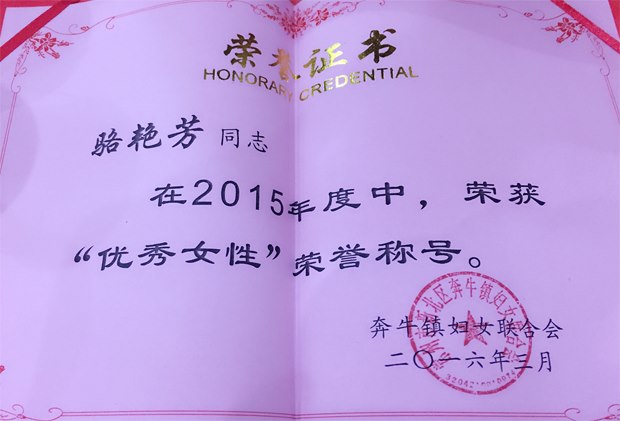 荣誉证书
HONORARY CREDENTIAL
骆艳芳同志
在2015年度中，荣获
“优秀女性”荣誉称号。
奔牛镇妇女联合会
二〇一六年三月